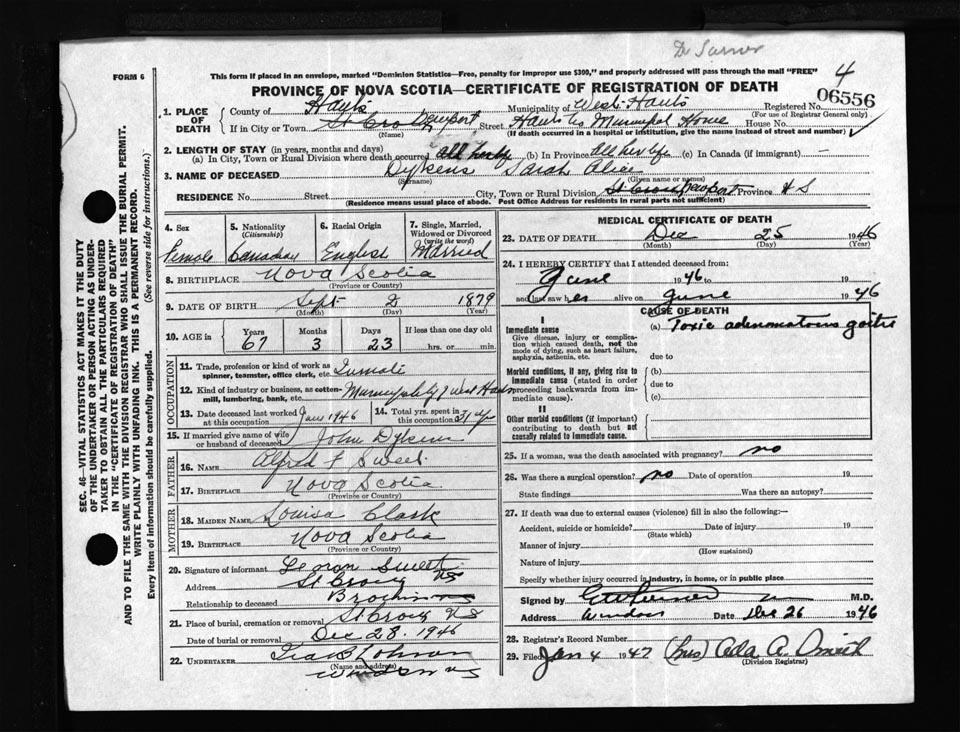 Dr
FORM 6
This form if placed in an envelope, marked "Dominion Statistics—Free, penalty for improper use $300," and properly addressed will pass through the mail "FREE"
4
PROVINCE OF NOVA SCOTIA—CERTIFICATE OF REGISTRATION OF DEATH
06556
1. PLACE OF DEATH
County of Hants Municipality of West Hants Registered No.
(For use of Registrar General only)
If in City or Town St Croix Newport Street Hants Co Municipal Home House No.
(Name) (If death occurred in a hospital or institution, give the name instead of street and number)
2. LENGTH OF STAY (in years, months and days)
(a) In City, Town or Rural Division where death occurred all her life (b) In Province All her life (c) In Canada (if immigrant) —
3. NAME OF DECEASED Dykens Sarah Alice
(Surname) (Given name or names)
RESIDENCE No. Street City, Town or Rural Division St Croix Newport Province N S
(Residence means usual place of abode. Post Office Address for residents in rural parts not sufficient)
4. Sex
Female
5. Nationality (Citizenship)
Canadian
6. Racial Origin
English
7. Single, Married, Widowed or Divorced (write the word)
Married
8. BIRTHPLACE Nova Scotia
(Province or Country)
9. DATE OF BIRTH Sept 2 1879
(Month) (Day) (Year)
10. AGE in Years Months Days If less than one day old
67 3 23 hrs. or min.
OCCUPATION
11. Trade, profession or kind of work as spinner, teamster, office clerk, etc. Inmate
12. Kind of industry or business, as cotton-mill, lumbering, bank, etc. Municipality of West Hants
13. Date deceased last worked at this occupation Jan 1946
14. Total yrs. spent in this occupation
15. If married give name of wife or husband of deceased John Dykens
FATHER
16. NAME Alfred F Sweet
17. BIRTHPLACE Nova Scotia
(Province or Country)
MOTHER
18. MAIDEN NAME Louisa Clark
19. BIRTHPLACE Nova Scotia
(Province or Country)
20. Signature of informant Sweet
Address St Croix NS
Relationship to deceased Brother
21. Place of burial, cremation or removal St Croix N S
Date of burial or removal Dec 28. 1946
22. UNDERTAKER Ira B Lohnson
(Name and address)
Windsor NS
MEDICAL CERTIFICATE OF DEATH
23. DATE OF DEATH Dec 25 1946
(Month) (Day) (Year)
24. I HEREBY CERTIFY that I attended deceased from:
June 1946 to 19
and last saw her alive on June 1946
CAUSE OF DEATH
I
Immediate cause
Give disease, injury or complication which caused death, not the mode of dying, such as heart failure, asphyxia, asthenia, etc.
(a) Toxic adenomatous goitre
due to
Morbid conditions, if any, giving rise to immediate cause (stated in order proceeding backwards from immediate cause).
(b)
due to
(c)
II
Other morbid conditions (if important) contributing to death but not causally related to immediate cause.
25. If a woman, was the death associated with pregnancy? no
26. Was there a surgical operation? no Date of operation 19
State findings Was there an autopsy?
27. If death was due to external causes (violence) fill in also the following:—
Accident, suicide or homicide? Date of injury 19
(State which)
Manner of injury
(How sustained)
Nature of injury
Specify whether injury occurred in industry, in home, or in public place
Signed by M.D.
Address Windsor Date Dec 26 1946
28. Registrar's Record Number
29. Filed Jan 4 1947 (Mrs) Ada A. Smith
(Division Registrar)
SEC. 46—VITAL STATISTICS ACT MAKES IT THE DUTY
OF THE UNDERTAKER OR PERSON ACTING AS UNDER-
TAKER TO OBTAIN ALL THE PARTICULARS REQUIRED
IN THE "CERTIFICATE OF REGISTRATION OF DEATH"
AND TO FILE THE SAME WITH THE DIVISION REGISTRAR WHO SHALL ISSUE THE BURIAL PERMIT.
WRITE PLAINLY WITH UNFADING INK. THIS IS A PERMANENT RECORD.
Every item of information should be carefully supplied. (See reverse side for instructions.)